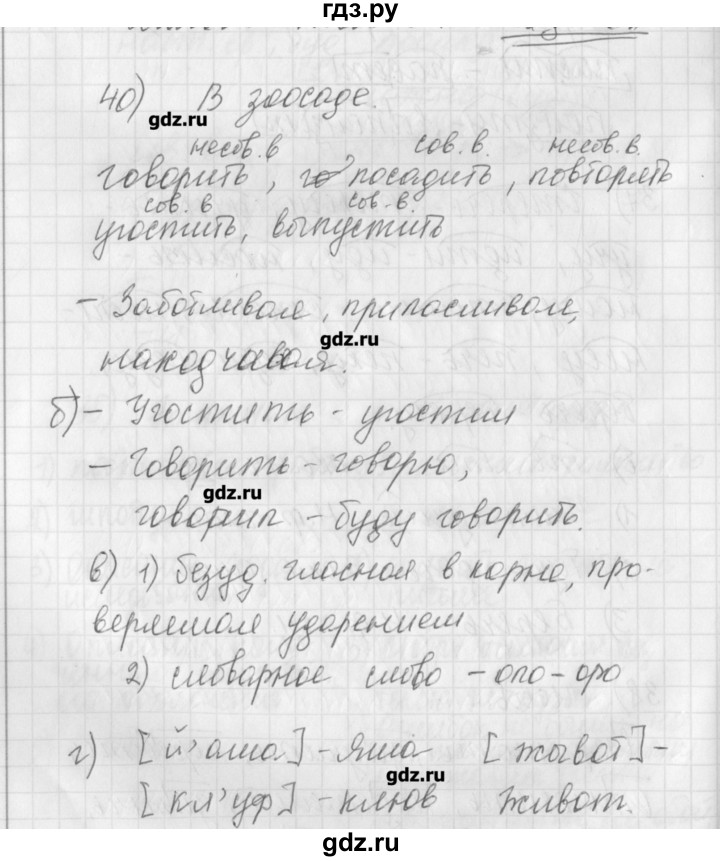 гдз.ру
40) В зоосаде.
gdz.ru
несов. в сов. в. несов. в.
говорить, посадить, повторять
сов. в сов. в.
угостить, выпустить
- Заботливая, припасливая,
gdz.ru
находчивая.
б) - Угостить - угостил
- Говорить - говорю,
gdz.ru
говорил - буду говорить.
в) 1) безуд. гласная в корне, про-
веряемая ударением
2) словарное слово - оло - оро
г) [й'аша] - Яша [жывот] -
gdz.ru
[кл'уф] - клюв живот.
gdz.ru